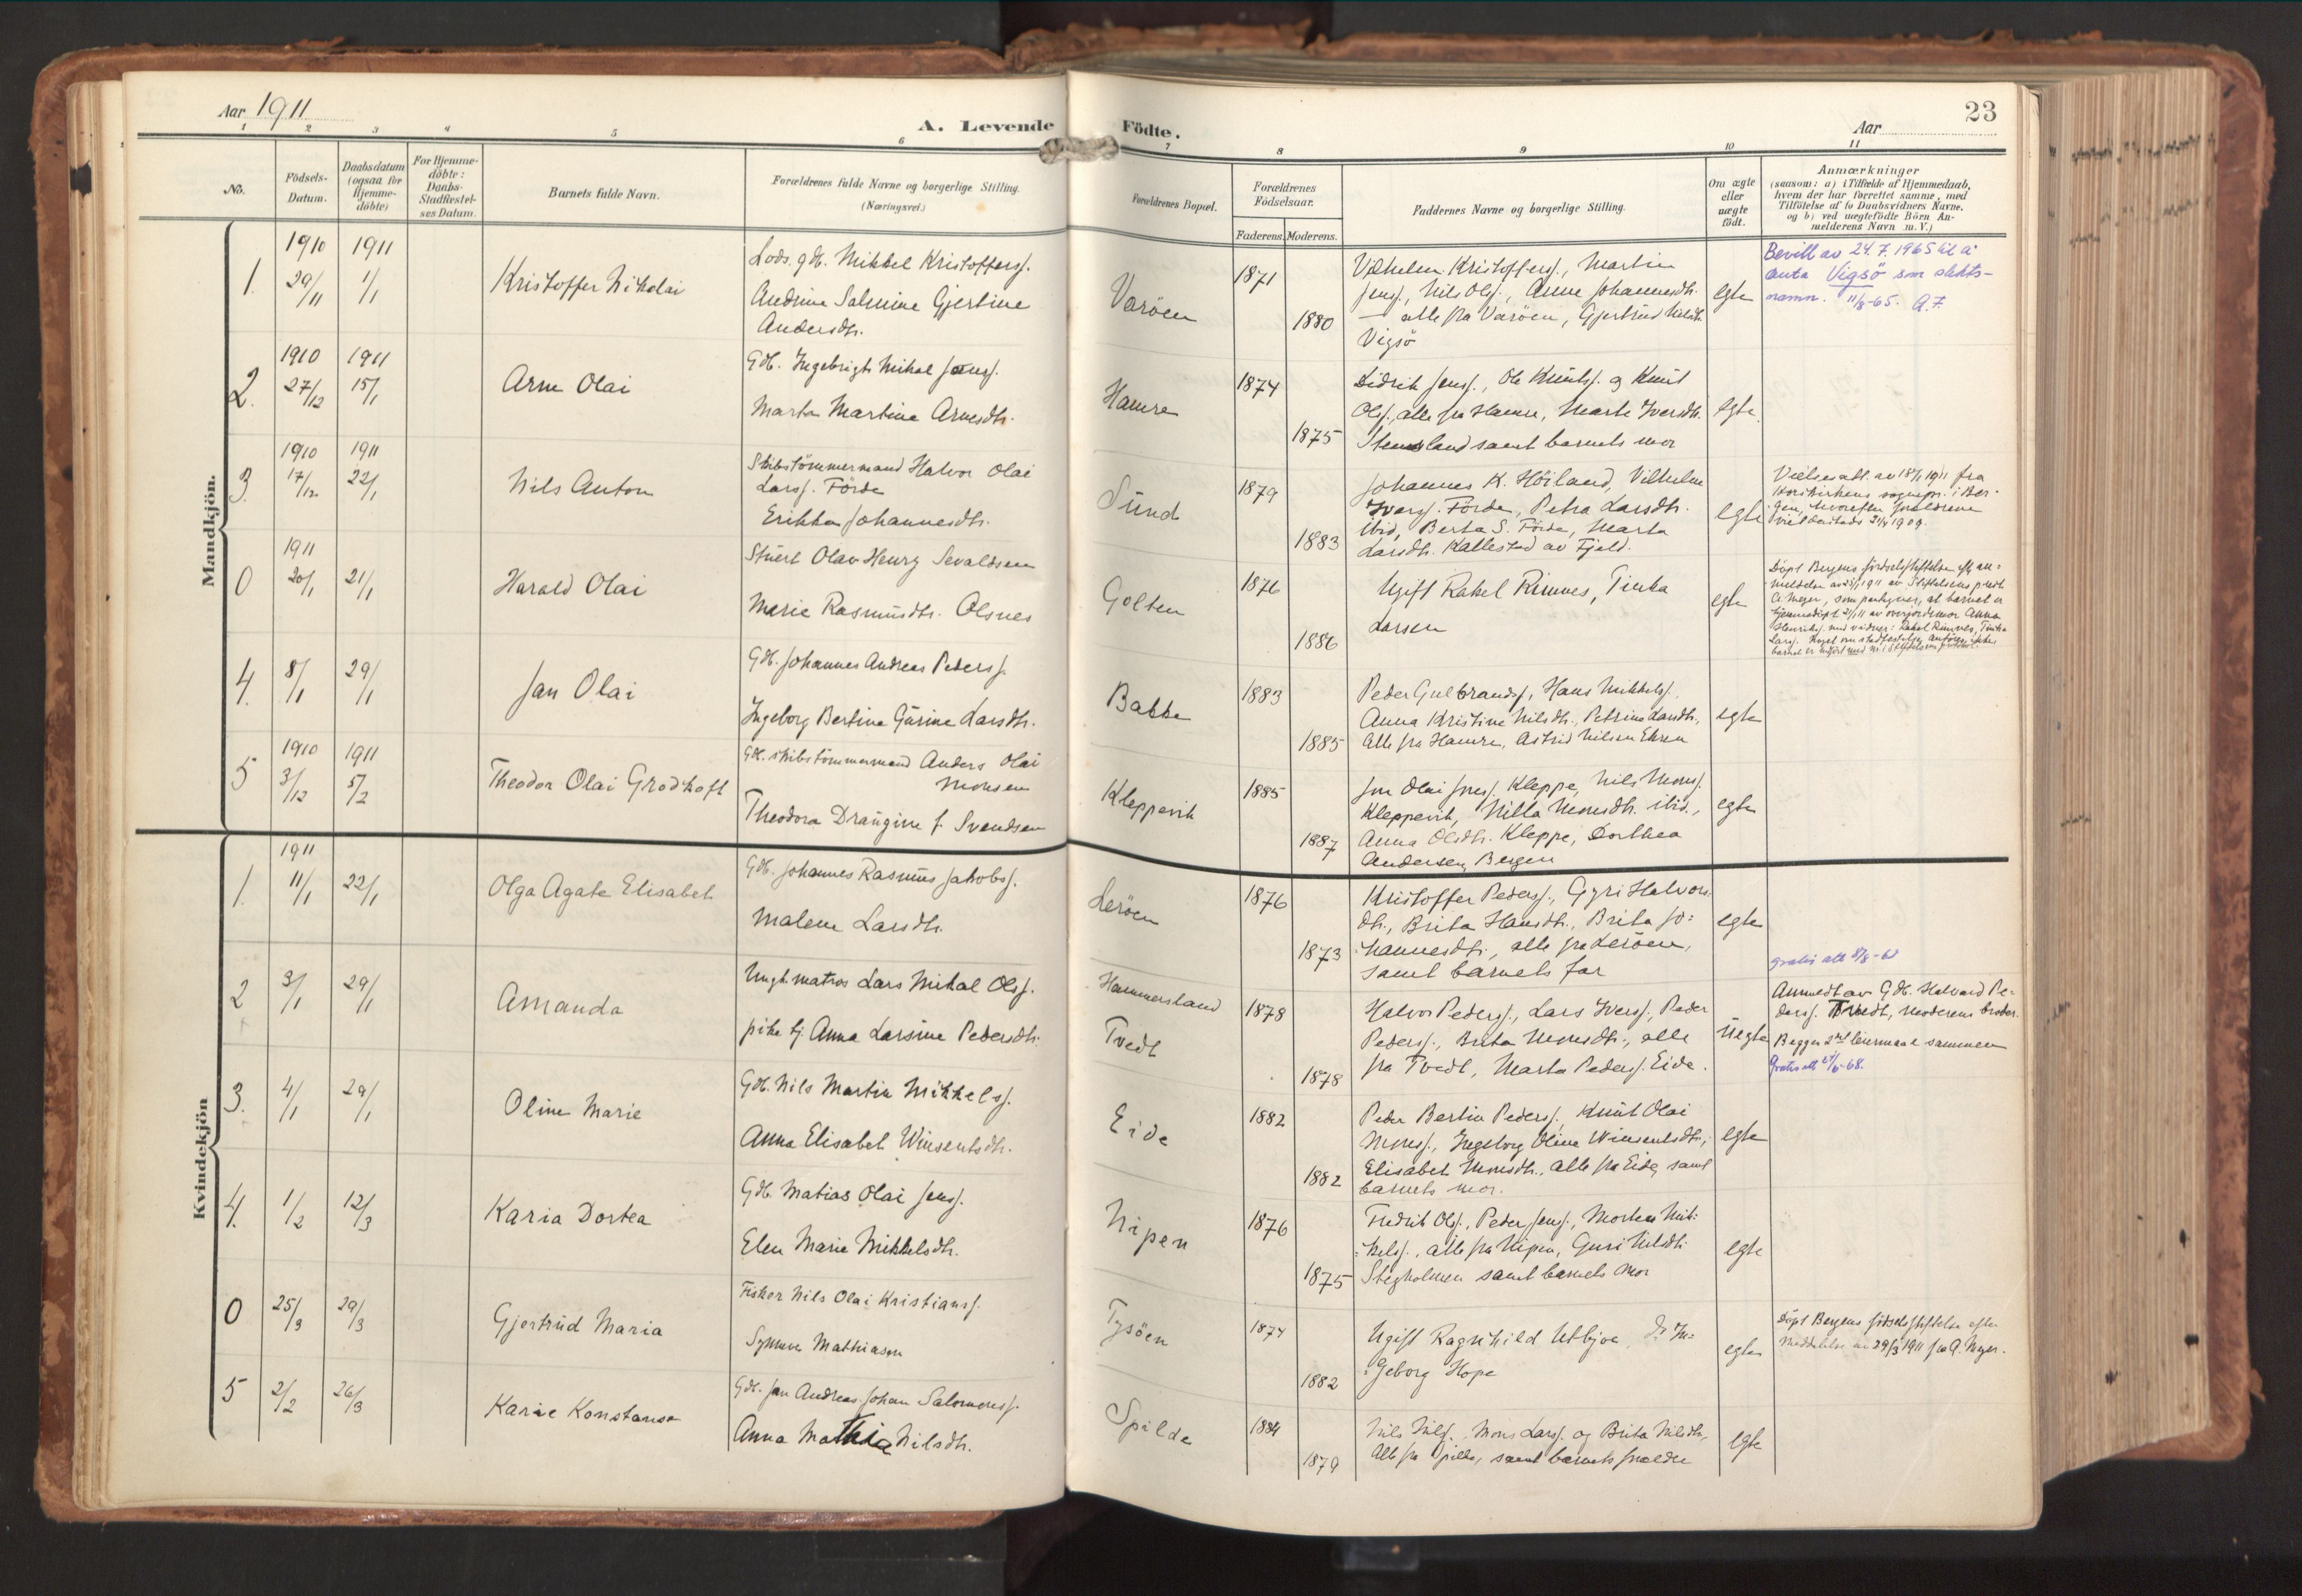 Aar 1911
A. Levende Födte.
Aar
23
1 2 3 4 5 6 7 8 9 10 11
No.
Födsels-
Datum.
Daabsdatum
(ogsaa for
Hjemme-
döbte)
For Hjemme-
döbte:
Daabs-
Stadfestel-
ses Datum.
Barnets fulde Navn.
Forældrenes fulde Navne og borgerlige Stilling.
(Næringsvei.)
Forældrenes Bopæl.
Forældrenes
Födselsaar.
Faderens. Moderens.
Faddernes Navne og borgerlige Stilling.
Om ægte
eller
uægte
födt.
Anmærkninger
(saasom: a) i Tilfælde af Hjemmedaab,
hvem der har forrettet samme, med
Tilföielse af to Daabsvidners Navne,
og b) ved uægtefödte Börn An-
melderens Navn m. V.)
Mandkjön.
1. 1910 29/11 1911 1/1
Kristoffer Nikolai
Lods. gdb. Mikkel Kristoffersf.
Andrine Salmine Gjertine
Andersdtr.
Varöen
1871
1880
Vilhelm Kristoffersf., Martin
Jensf., Nils Olsf., Anne Johannesdtr.
– alle fra Varöen, Gjertrud Nilsdtr.
Vigsö
egte
Bevill av 24.7.1965 til å
anta Vigsö som slekts-
namn. 11/8-65. A.F.
2. 1910 27/12 1911 15/1
Arne Olai
Gdb. Ingebrigt Mikal Jensf.
Marta Martina Arnesdtr.
Hamre
1874
1875
Didrik Jensf., Ole Knutsf. og Knut
Olsf., alle fra Hamre, Marte Iversdtr.
Stensland samt barnets mor
egte
3. 1910 17/12 1911 22/1
Nils Anton
Skibstömmermand Halvor Olai
Larsf. Förde
Erikka Johannesdtr.
Sund
1879
1883
Johannes K. Höiland, Vilhelm
Iversf. Förde, Petra Larsdtr.
ibid, Berta S. Förde, Marta
Larsdtr. Kallestad av Fjeld.
egte
Vielsesatt. av 18/1 1911 fra
Korskirkens sognepr. i Ber-
gen, hvorefter forældrene
0 1911 20/1 21/1
Harald Olai
Stuert Olav Henry Sevaldsen
Marie Rasmusdtr. Olsnes
Golten
1876
1886
Ugift Rakel Rimnes, Tinka
Larsen
egte
Döpt Bergens födselsstiftelse eft. an-
meldelse av 23/1 1911 av Stiftelsens prest
A. Meyer, som paategner, at barnet er
hjemmedöpt 21/1 11 av overjordemor Anna
Henriks. med vidner: Rakel Rimnes, Tinka
4. 8/1 29/1
Jan Olai
Gdb. Johannes Andreas Pedersf.
Ingeborg Bertine Gurine Larsdtr.
Bakke
1883
1885
Peder Gulbrandsf., Hans Mikkelsf.
Anna Kristine Nilsdtr., Petrine Larsdtr.,
Alle fra Hamre, Astrid Nilsen Ekren
egte
5 1910 3/12 1911 5/2
Theodor Olai Grodhoft
Gdb. skibstömmermand Anders Olai
Monsen
Theodora Drangine f. Svendsen
Kleppevik
1885
1887
Jon Olai Jonsf. Kleppe, Nils Monsf.
Kleppevik, Nilla Monsdtr. ibid.,
Anna Olsdtr. Kleppe, Dorthea
Andersen, Bergen
egte
Kvindekjön
1. 1911 11/1 22/1
Olga Agate Elisabet
Gdb. Johannes Rasmus Jakobsf.
Malene Larsdtr.
Leröen
1876
1873
Kristoffer Pedersf., Gyri Halvors-
dtr., Brita Hansdtr., Brita Jo-
hannesdtr., alle fra Leröen,
samt barnets far
egte
2 3/1 29/1
Amanda
Ungk. matros Lars Mikal Olsf.
pike tj. Anna Larsine Pedersdtr.
Hammersland
Tvedt
1878
1878
Halvor Pedersf., Lars Iversf., Peder
Pedersf., Brita Monsdtr., alle
fra Tvedt, Marta Pedersf. Eide.
Uegte
gratis att 8/8-60
Anmeldt av Gdb. Halvard Pe-
dersf. Tvedt, moderens broder.
Begges 2det leiermaal sammen
Gratis att 21/6-68.
3. 4/1 29/1
Oline Marie
Gdb. Nils Martin Mikkelsf.
Anna Elisabet Winsentsdtr.
Eide
1882
1882
Peder Bertin Pedersf., Knut Olai
Monsf., Ingeborg Oline Winsentsdtr.,
Elisabet Monsdtr., alle fra Eide, samt
barnets mor.
egte
4. 1/2 12/3
Karia Dortea
Gdb. Matias Olai Jensf.
Elen Marie Mikkelsdtr.
Nipen
1876
1875
Fredrik Olsf., Peder Jensf., Morten Mik-
kelsf., alle fra Nipen, Guri Nilsdtr.
Stegholmen samt barnets mor
egte
0 25/3 29/3
Gjertrud Maria
Fisker Nils Olai Kristiansf.
Synneve Mathiasen
Tysöen
1874
1882
Ugift Ragnhild Utbjoe, Do In-
geborg Hope
egte
Döpt Bergens födselsstiftelse efter
Meddelelse av 29/3 1911 fra A. Meyer.
5 2/2 26/3
Karie Konstanse
Gdb. Jan Andreas Johan Salomonsf.
Anna Mathia Nilsdtr.
Spilde
1884
1879
Nils Nilsf., Mons Larsf. og Brita Nilsdtr.,
Alle fra Spilde, samt barnets forældre
egte